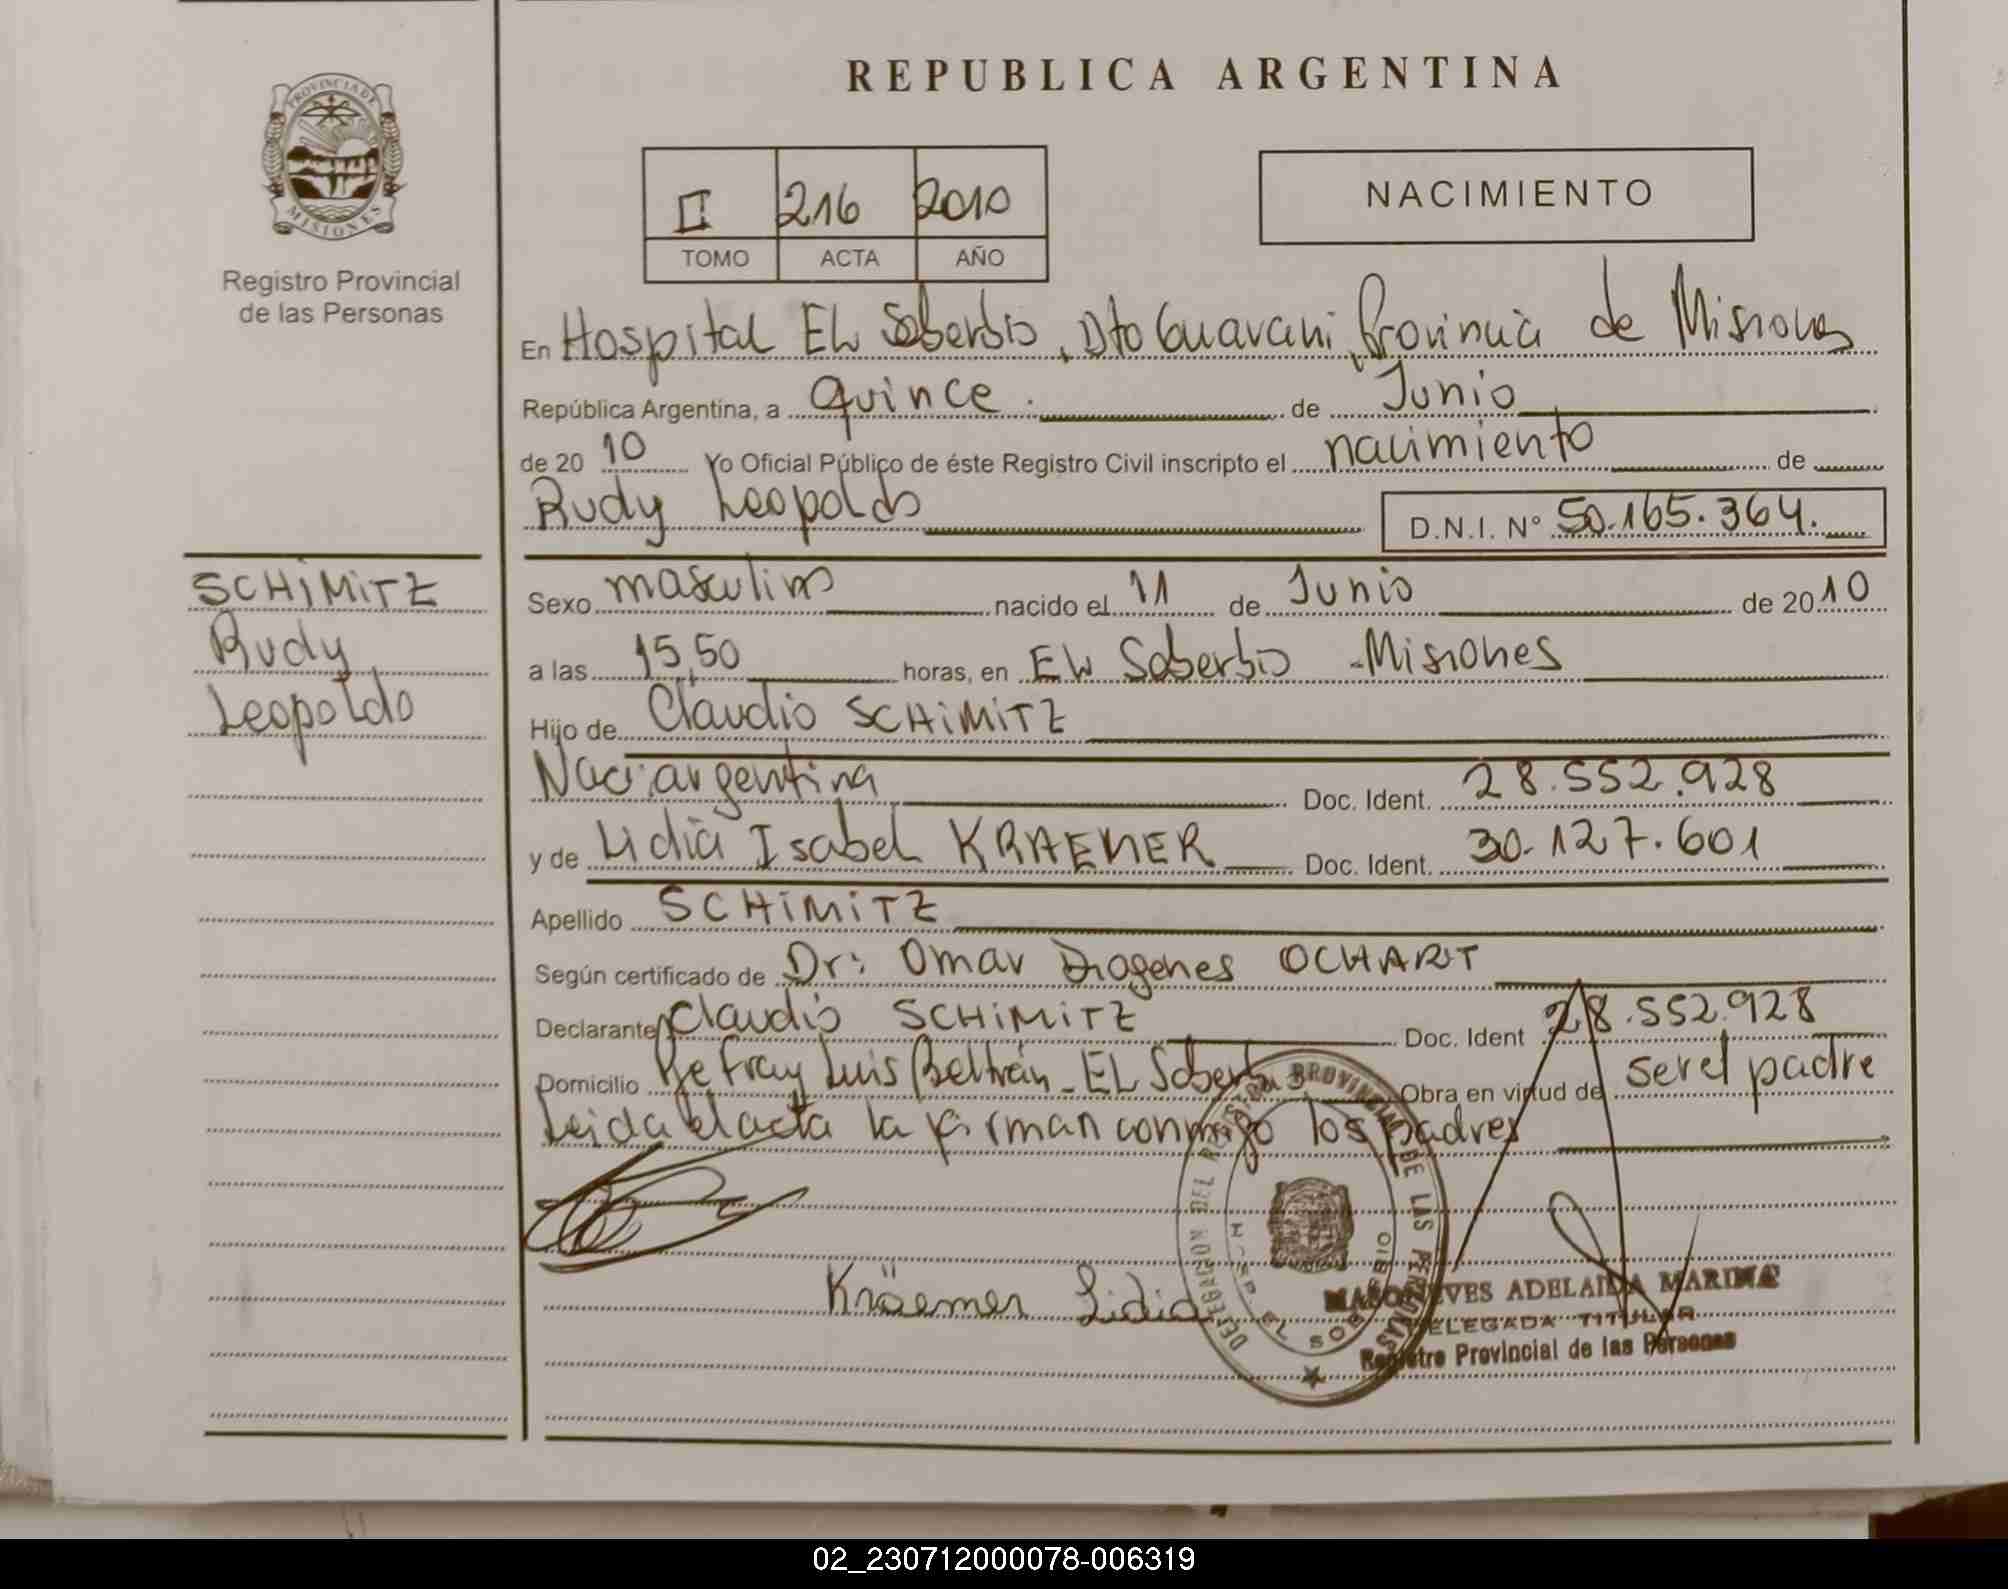 REPUBLICA ARGENTINA
PROVINCIA DE
MISIONES
Registro Provincial
de las Personas
II 216 2010
TOMO ACTA AÑO
NACIMIENTO
En Hospital EL Soberbio, Dto Guarani, Provincia de Misiones
República Argentina, a quince. de Junio
de 2010 Yo Oficial Público de éste Registro Civil inscripto el nacimiento de
Rudy Leopoldo D.N.I. N° 50.165.364.
SCHIMITZ
Rudy
Leopoldo
Sexo masculino nacido el 11 de Junio de 2010
a las 15,50 horas, en EL Soberbio - Misiones
Hijo de Claudio SCHIMITZ
Nac: argentina Doc. Ident. 28.552.928
y de Lidia Isabel KRAEMER Doc. Ident. 30.127.601
Apellido SCHIMITZ
Según certificado de Dr: Omar Diogenes OCHART
Declarante Claudio SCHIMITZ Doc. Ident 28.552.928
Domicilio Pje Fray Luis Beltrán - EL Soberbio Obra en virtud de ser el padre
Leida el acta la firman conmigo los padres
DELEGACION DEL REGISTRO PROVINCIAL DE LAS PERSONAS
HOSP. EL SOBERBIO
Kräemer Lidia
ADELAIDA MARINA
DELEGADA TITULAR
Registro Provincial de las Personas
02_230712000078-006319